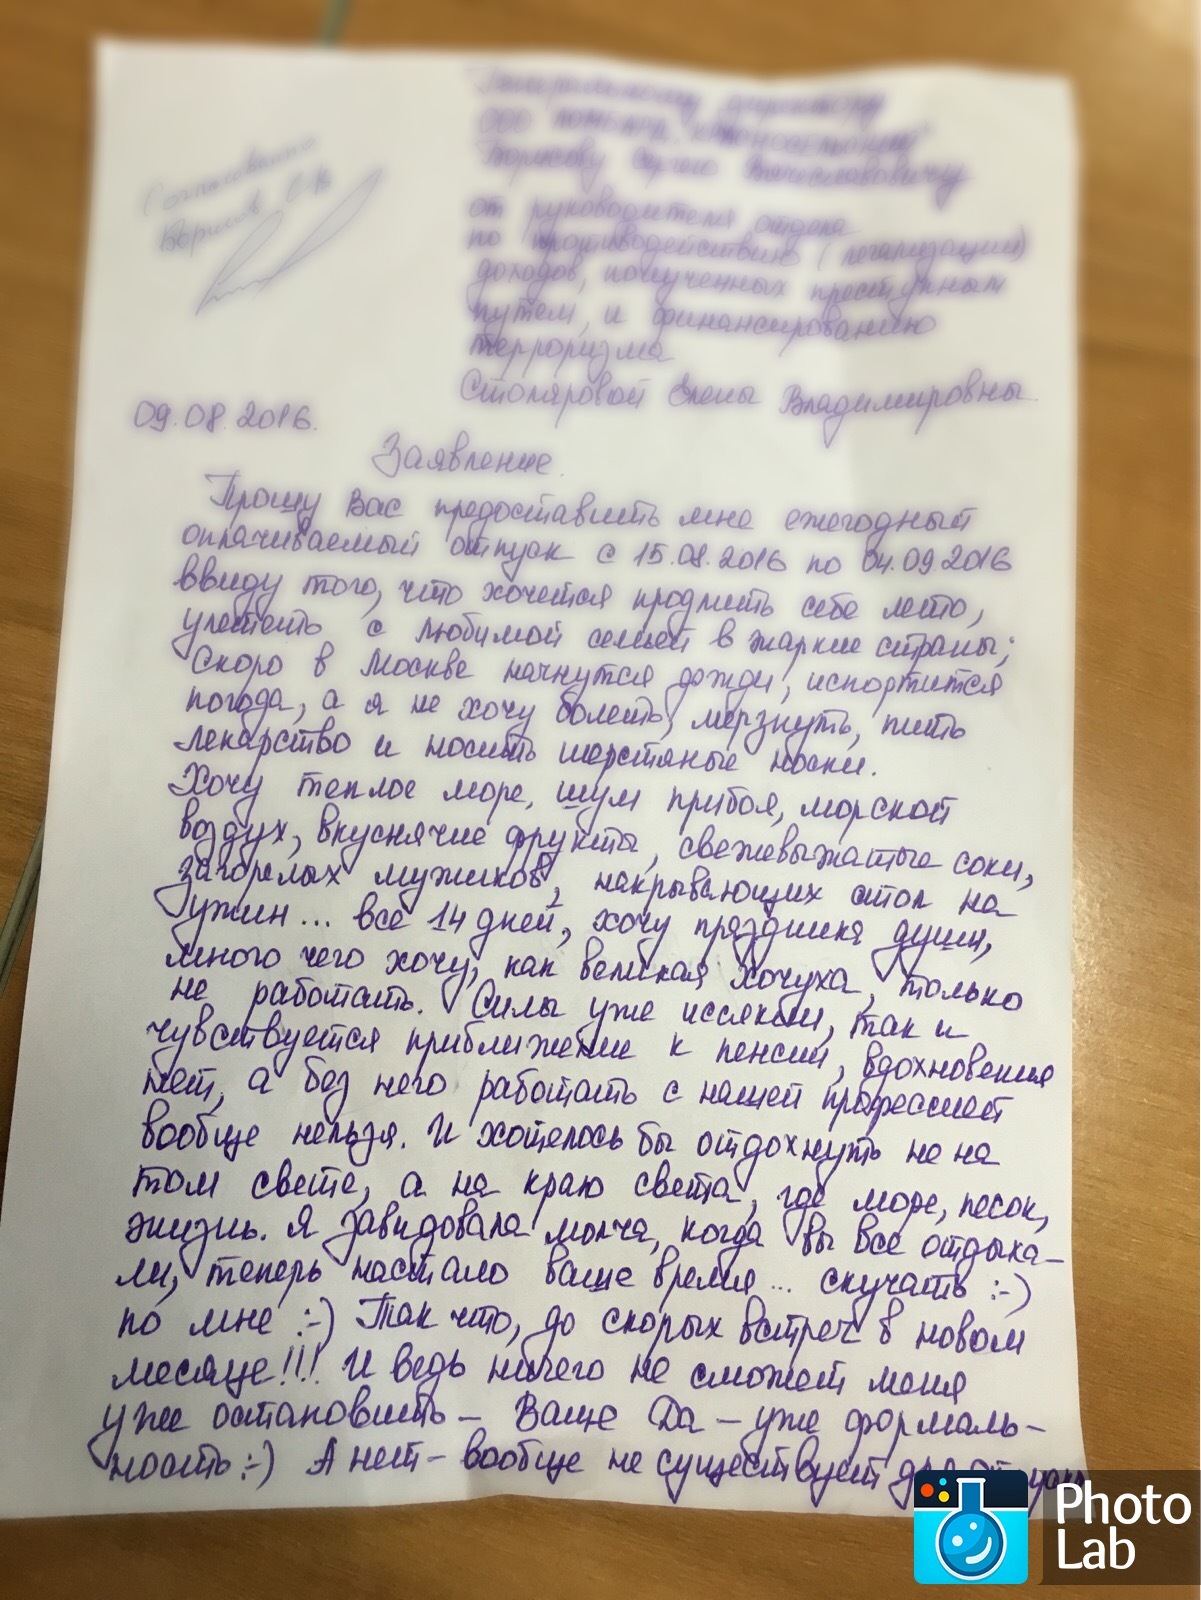 Генеральному директору
ООО
Борисову Сергею Вячеславовичу
Согласовано
Борисов С.В
от руководителя отдела
по противодействию (легализации)
доходов, полученных преступным
путем, и финансированию
терроризма
Столяровой Елены Владимировны
09.08.2016.
Заявление.
Прошу Вас предоставить мне ежегодный
оплачиваемый отпуск с 15.08.2016 по 04.09.2016
ввиду того, что хочется продлить себе лето,
улететь с любимой семьей в жаркие страны;
Скоро в Москве начнутся дожди, испортится
погода, а я не хочу болеть, мерзнуть, пить
лекарство и носить шерстяные носки.
Хочу теплое море, шум прибоя, морской
воздух, вкуснячие фрукты, свежевыжатые соки,
загорелых мужиков, накрывающих стол на
ужин... все 14 дней, хочу праздника души,
много чего хочу, как великая хочуха, только
не работать. Силы уже иссякли, так и
чувствуется приближение к пенсии, вдохновения
нет, а без него работать с нашей профессией
вообще нельзя. И хотелось бы отдохнуть не на
том свете, а на краю света, где море, песок,
жизнь. Я завидовала молча, когда вы все отдыха-
ли, теперь настало ваше время... скучать :-)
по мне :-) Так что, до скорых встреч в новом
месяце!!! И ведь ничего не сможет меня
уже остановить - Ваше Да - уже формаль-
ность :-) А нет - вообще не существует для
Photo
Lab